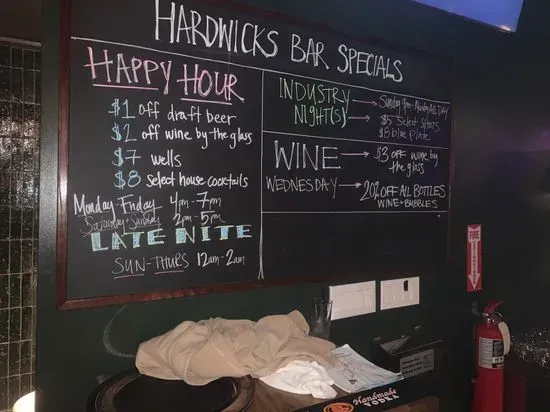 HARDWICKS BAR SPECIALS
HAPPY HOUR
$1 off draft beer
$2 off wine by the glass
$7 wells
$8 select house cocktails
Monday-Friday 4pm-7pm
Saturday+Sunday 2pm-5pm
LATE NITE
SUN-THURS 12am-2am
INDUSTRY NIGHT(S)
Sunday 9pm-Monday ALL DAY
$5 Select Shots
$8 blue plate
WINE WEDNESDAY
$3 OFF wine by the glass
20% OFF ALL BOTTLES
WINE+BUBBLES
FIRE
Handmade
VODKA